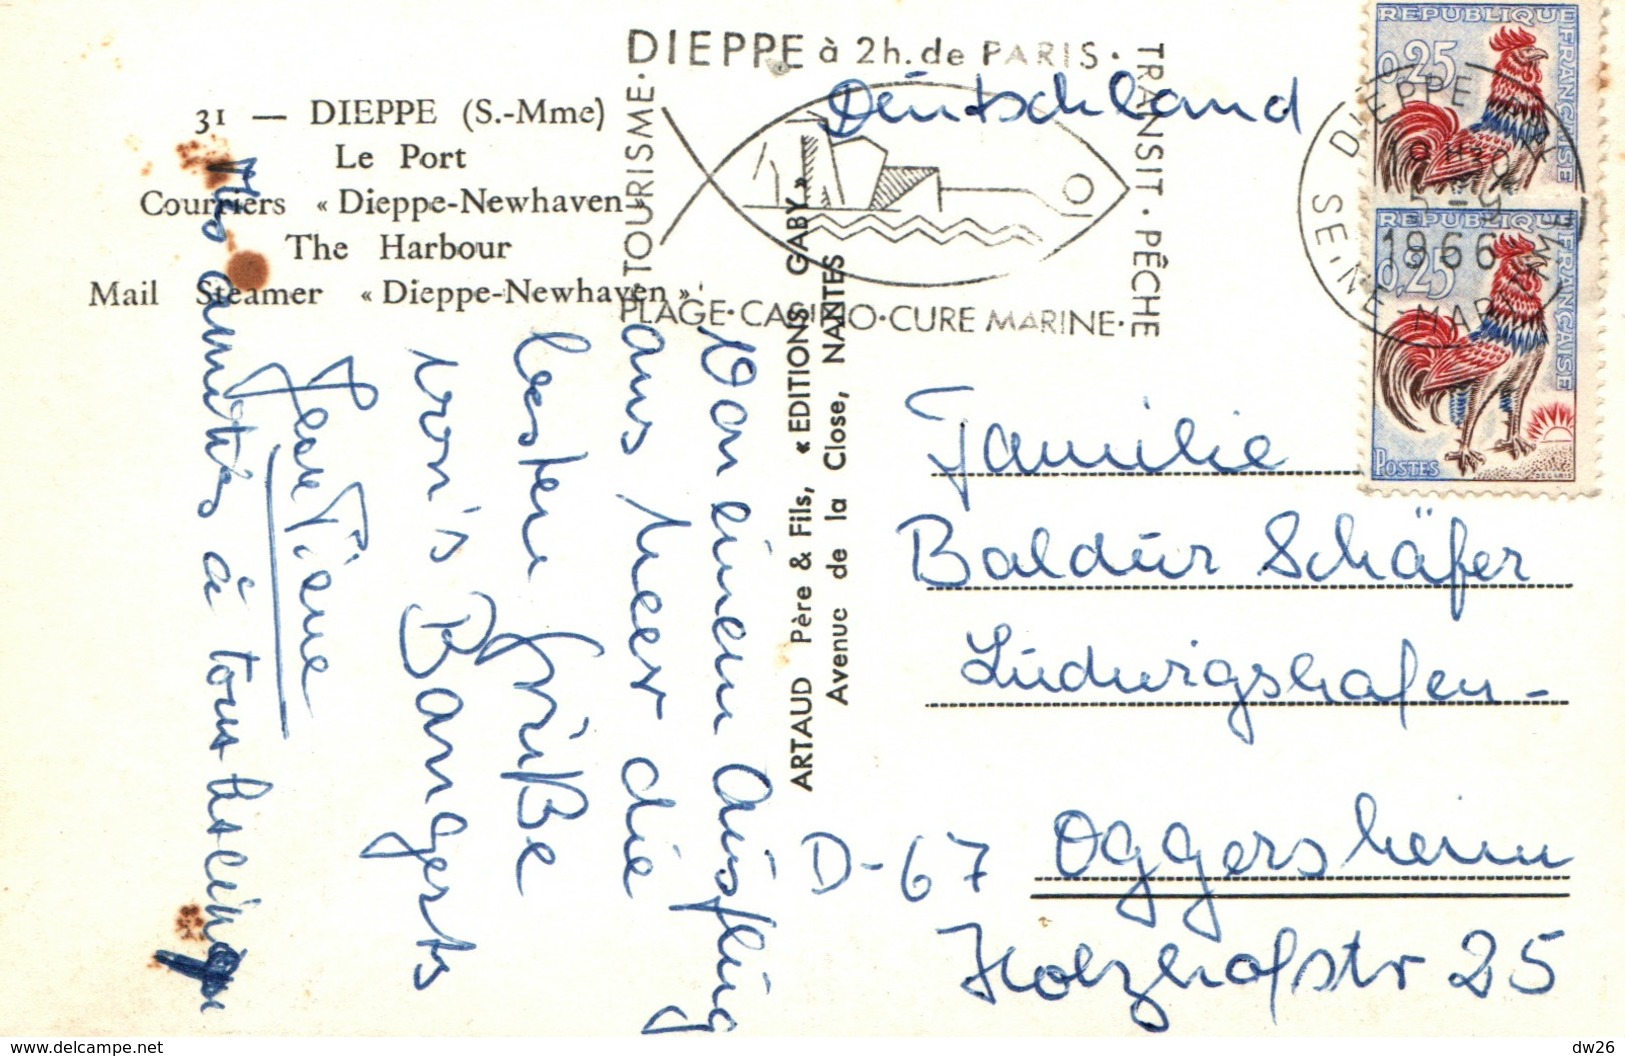 31 — DIEPPE (S.-Mme)
Le Port
Courriers « Dieppe-Newhaven »
The Harbour
Mail Steamer « Dieppe-Newhaven »
DIEPPE à 2h. de PARIS ·
TRANSIT · PÊCHE
TOURISME ·
PLAGE · CASINO · CURE MARINE ·
DIEPPE
18 H30
5 - 9
1966
SEINE-MARITIME
REPUBLIQUE FRANÇAISE
0,25
REPUBLIQUE FRANÇAISE
0,25
POSTES
DECARIS
Deutschland
Familie
Baldur Schäfer
Ludwigshafen-
D-67 Oggersheim
Holzhofstr 25
ARTAUD Père & Fils, « EDITIONS GABY »
Avenue de la Close, NANTES
Von einem Ausflug
ans Meer die
besten Grüße
von's Bangerts
Mes amitiés à tous